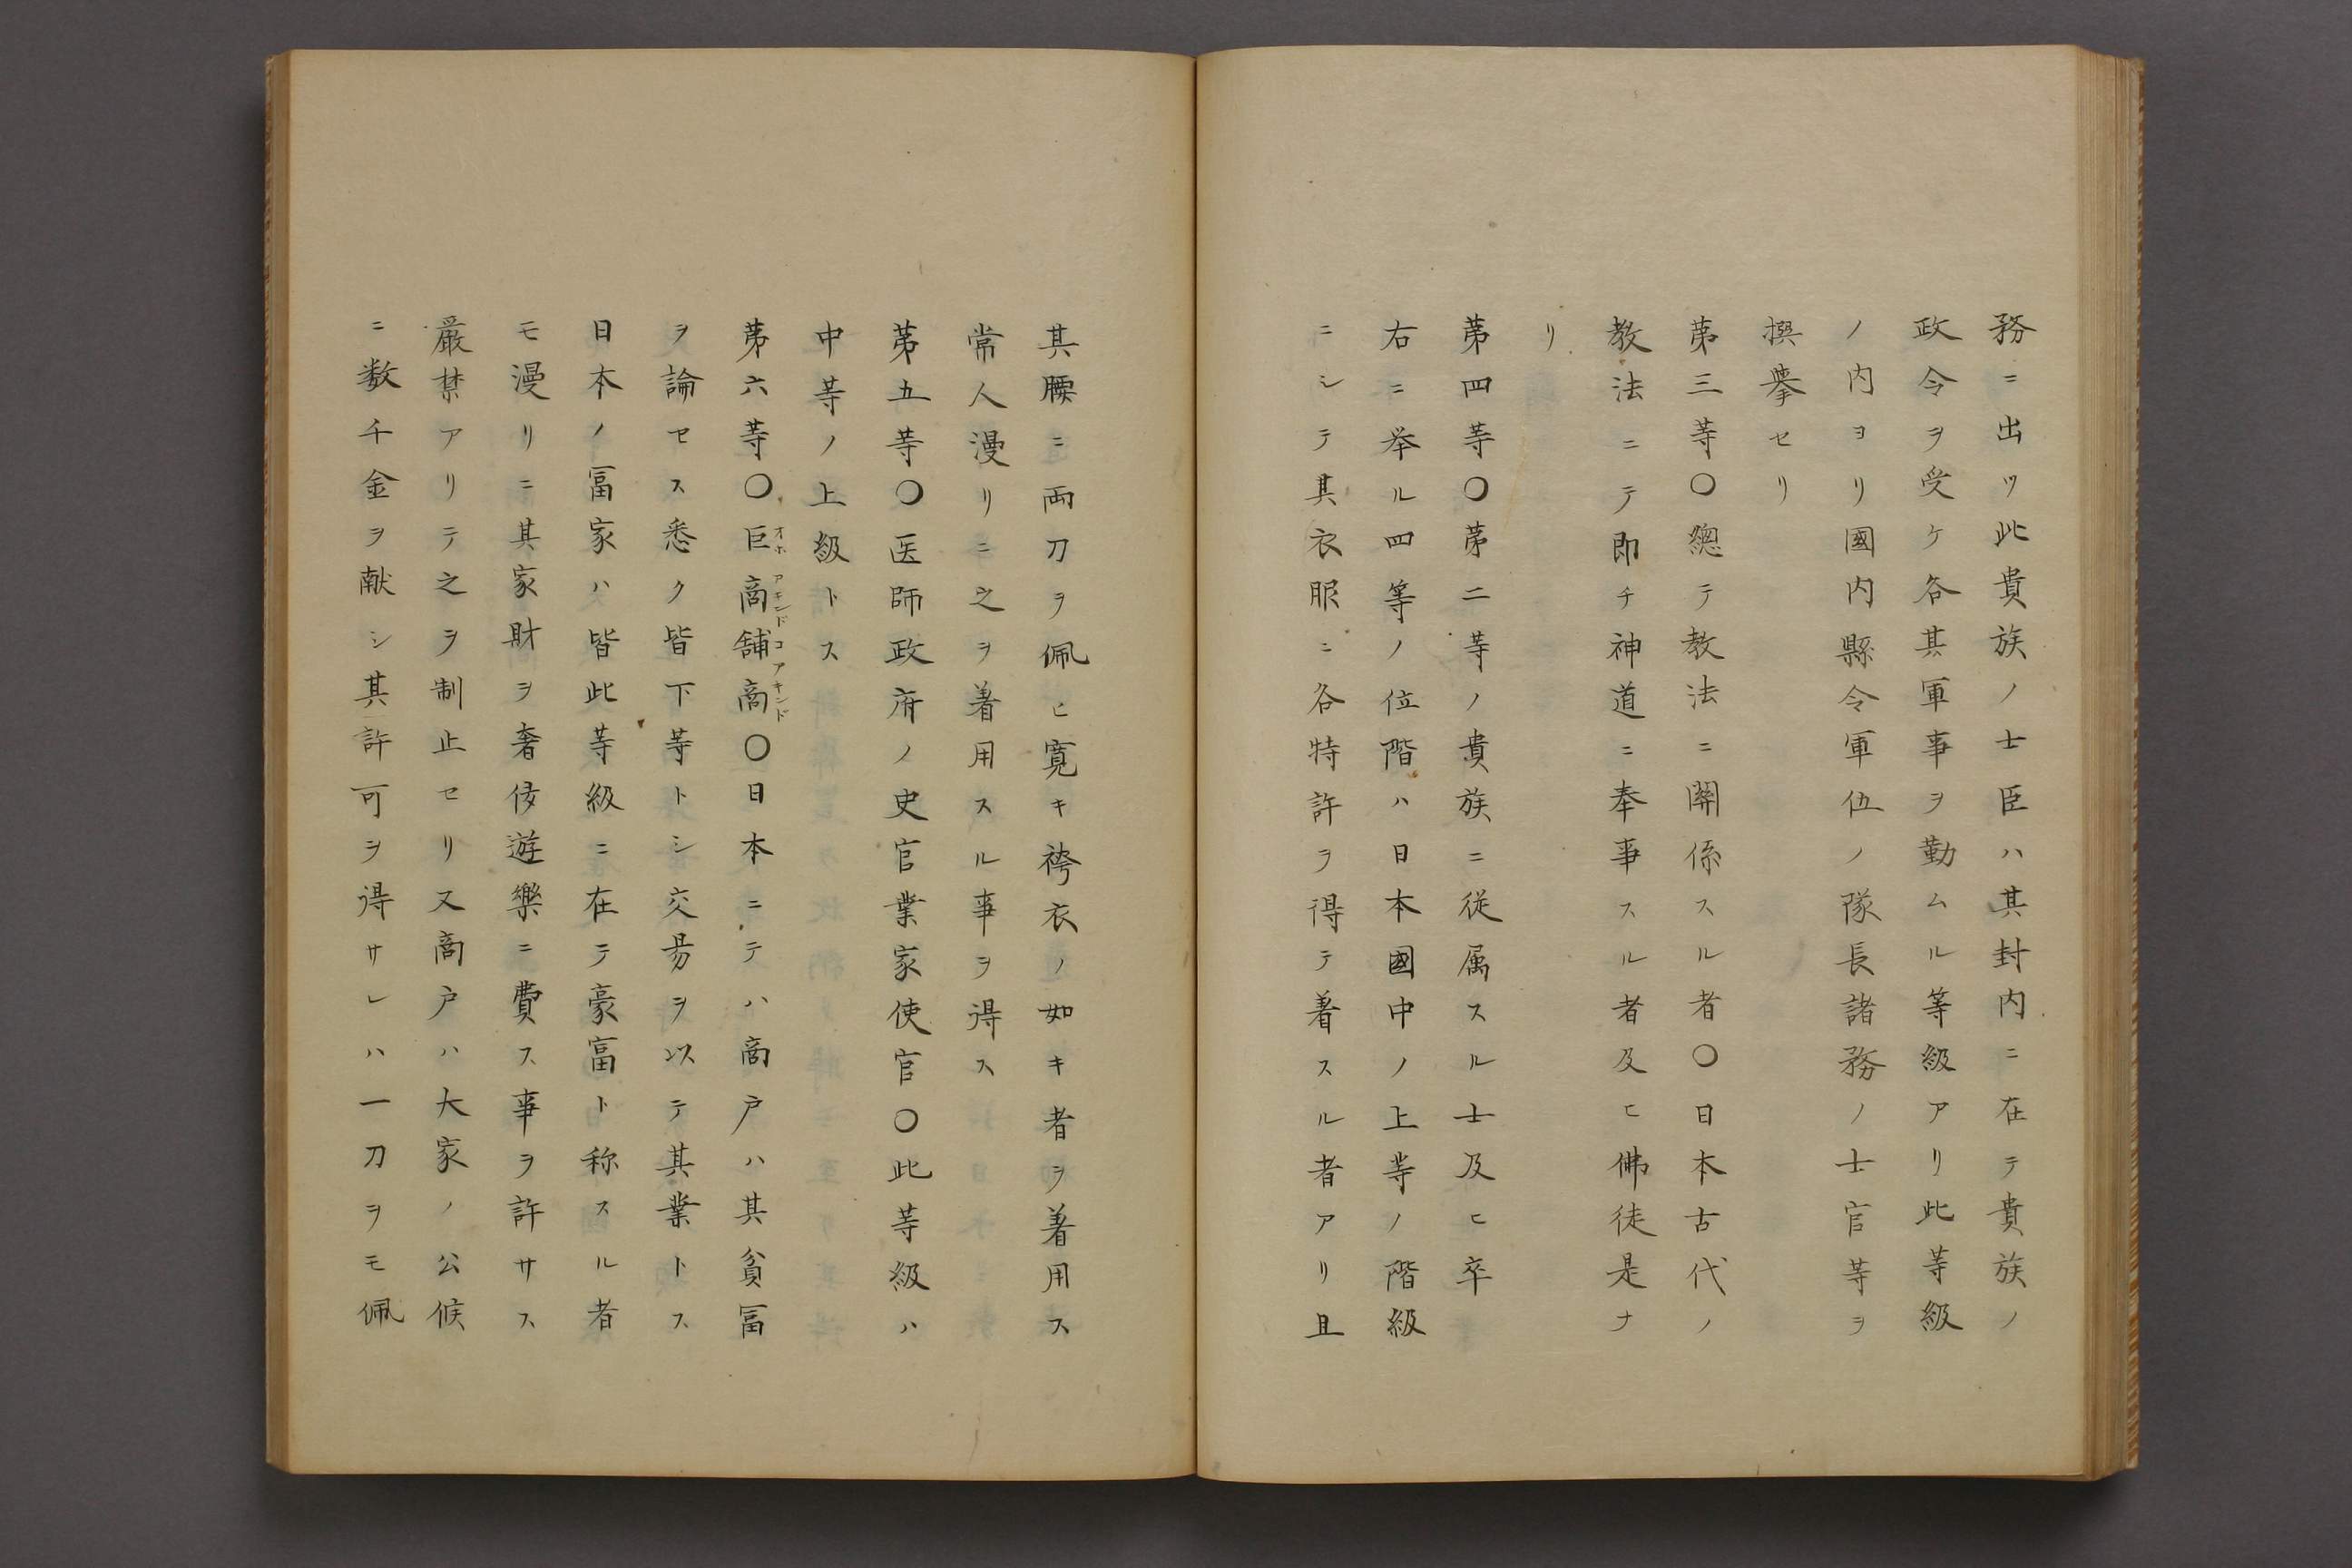 務ニ出ツ此貴族ノ士臣ハ其封内ニ在テ貴族ノ
政令ヲ受ケ各其軍事ヲ勤ムル等級アリ此等級
ノ内ヨリ國内縣令軍伍ノ隊長諸務ノ士官等ヲ
撰擧セリ
第三等〇總テ教法ニ關係スル者〇日本古代ノ
教法ニテ即チ神道ニ奉事スル者及ヒ佛徒是ナ
リ
第四等〇第二等ノ貴族ニ従属スル士及ヒ卒
右ニ举ル四等ノ位階ハ日本國中ノ上等ノ階級
ニシテ其衣服ニ各特許ヲ得テ着スル者アリ且
其腰ニ両刀ヲ佩ヒ寛キ袴衣ノ如キ者ヲ着用ス
常人漫リニ之ヲ着用スル事ヲ得ス
第五等〇医師政府ノ史官業家使官〇此等級ハ
中等ノ上級トス
第六等〇巨商舗商〇日本ニテハ商戸ハ其貧冨
オホアキンドコアキンド
ヲ論セス悉ク皆下等トシ交昜ヲ以テ其業トス
日本ノ冨家ハ皆此等級ニ在テ豪富ト称スル者
モ漫リニ其家財ヲ奢侈遊樂ニ費ス事ヲ許サス
厳禁アリテ之ヲ制止セリ又商戸ハ大家ノ公候
ニ数千金ヲ献シ其許可ヲ得サレハ一刀ヲモ佩